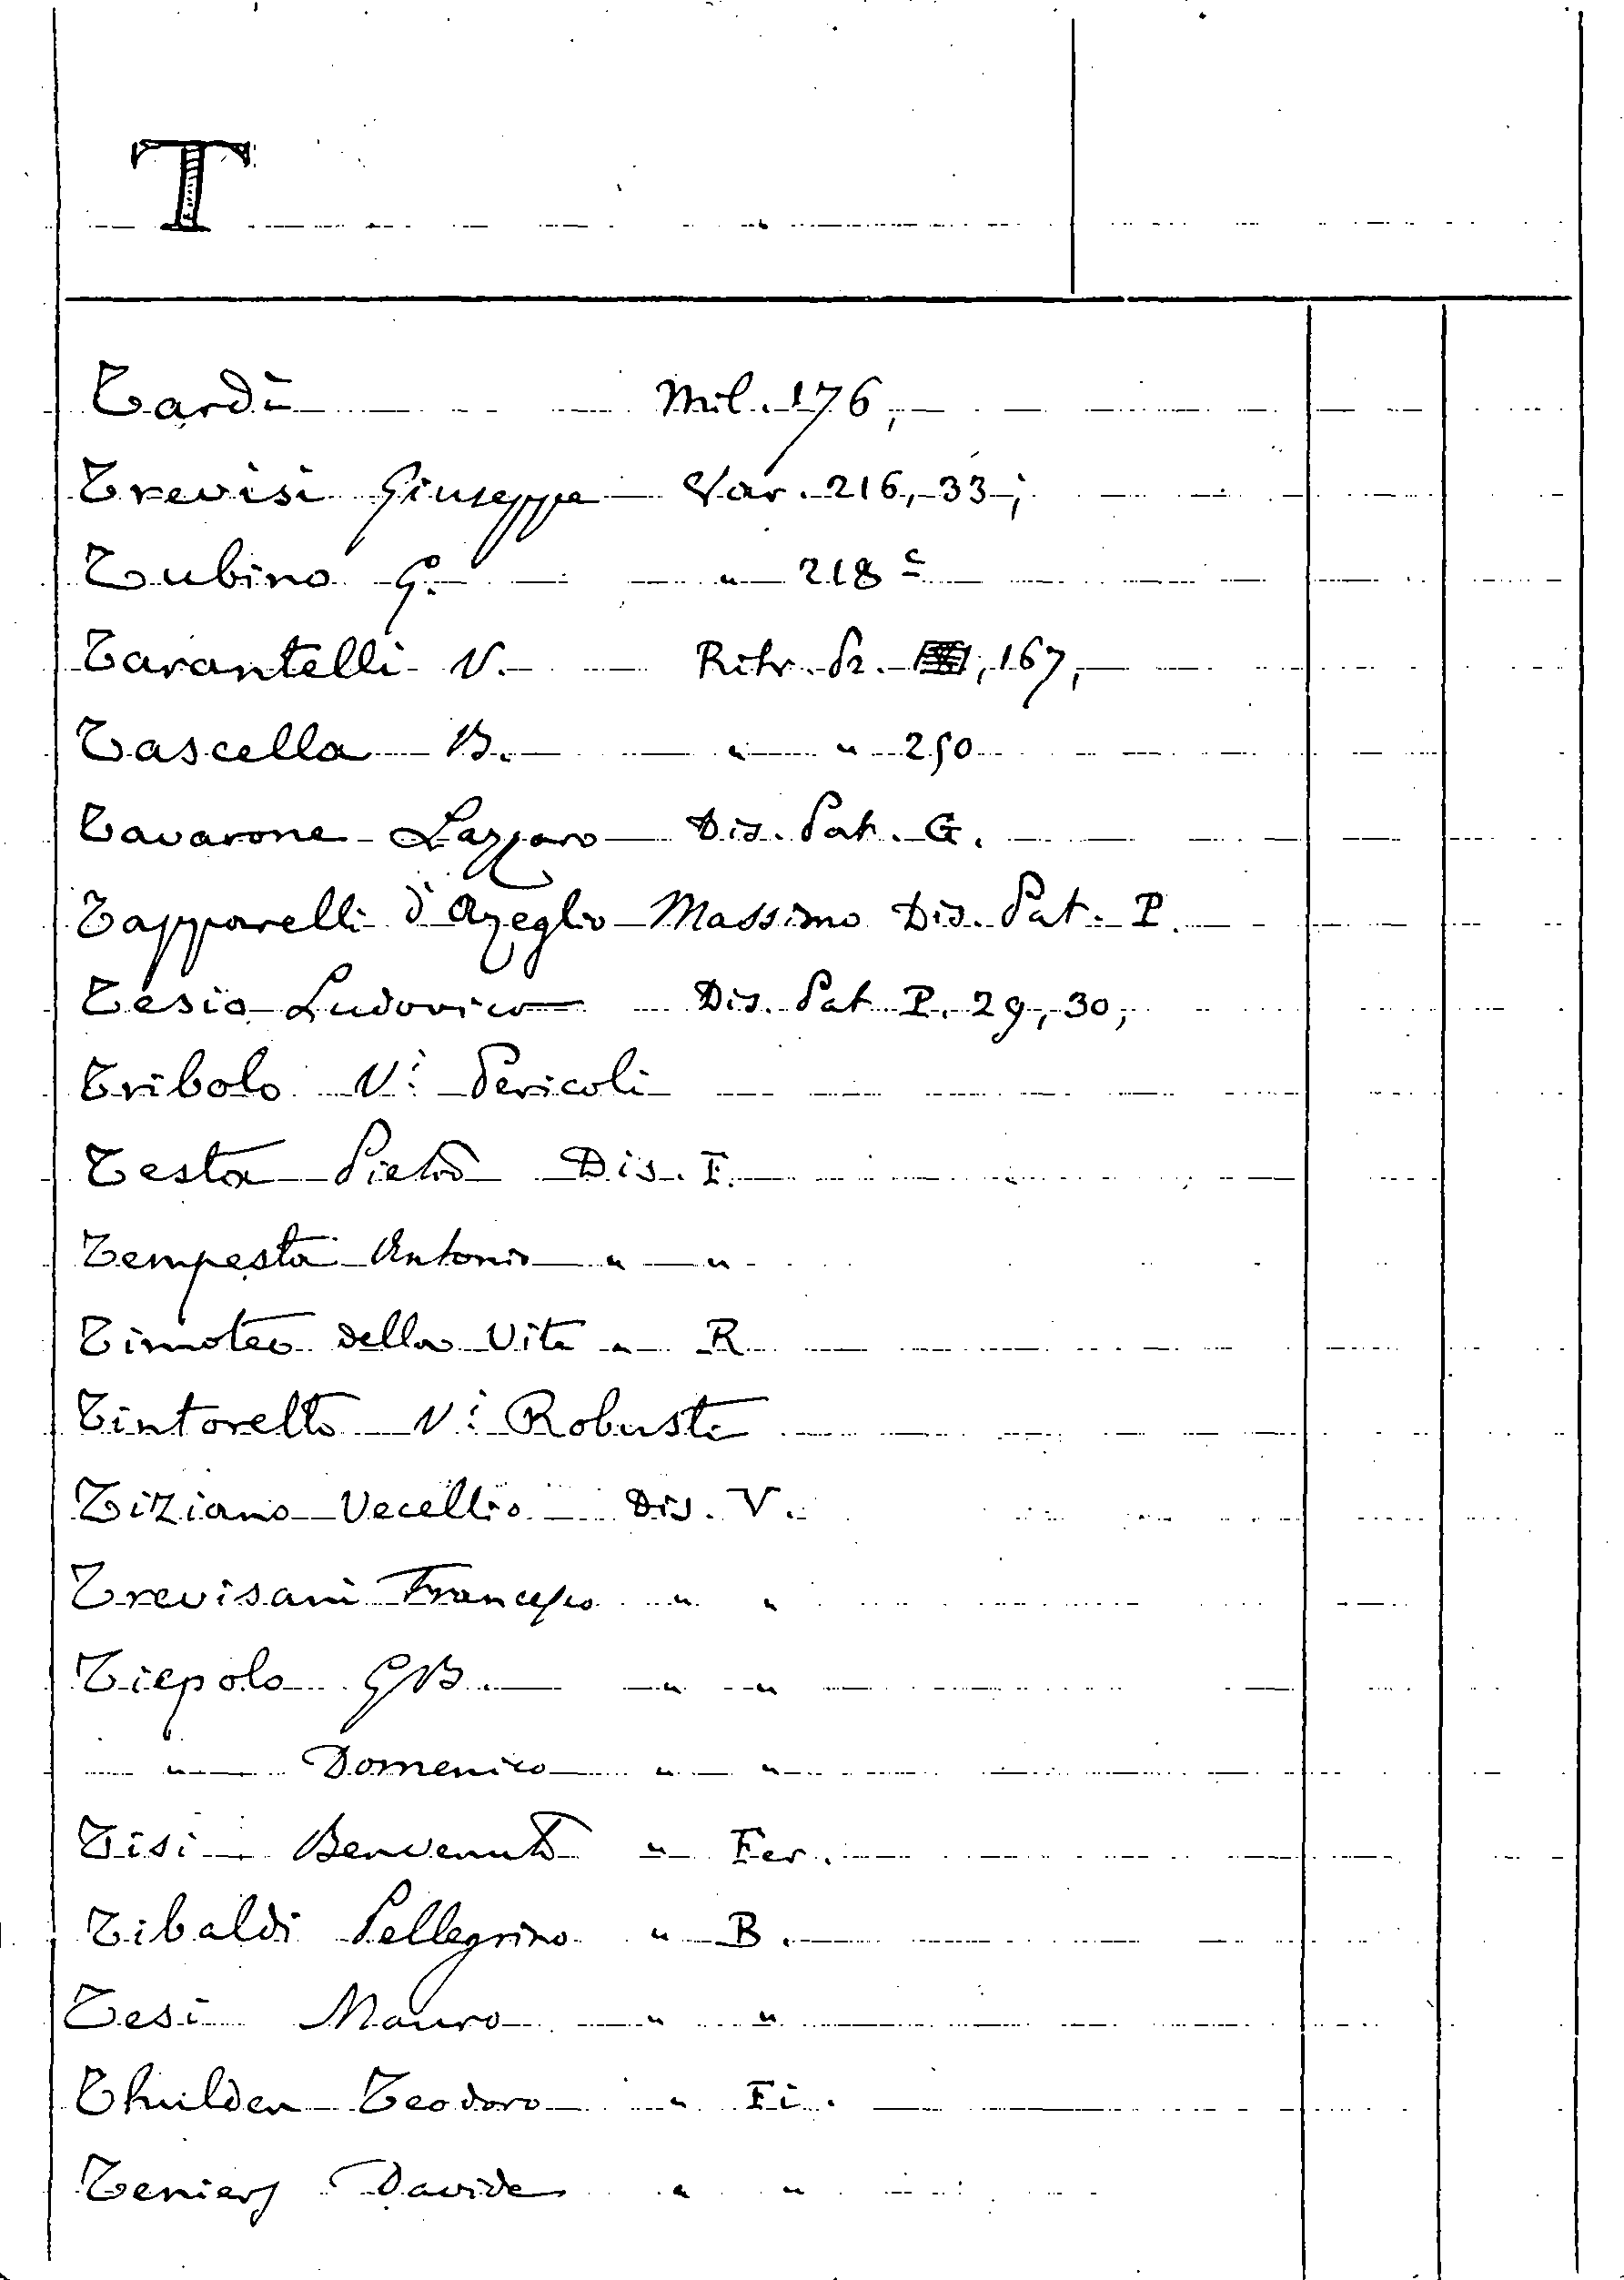 T
Tardi Mil. 176,
Trevisi Giuseppe Var. 216, 33;
Tubino G. " 218 c
Tarantelli V. Ritr. Pr. , 167,
Tascella B. " " 250
Tavarone Lazzaro Dis. Pat. G.
Tapparelli d'Azeglio Massimo Dis. Pat. P.
Tesio Ludovico Dis. Pat P. 29, 30,
Tribolo Vi Pericoli
Testa Pietro Dis. F.
Tempesta Antonio " "
Timoteo della Vite " R
Tintoretto Vi Robusti
Tiziano Vecellio Dis. V.
Trevisani Francesco " "
Tiepolo GB. " "
" Domenico " "
Tisi Benvenuto " Fer.
Tibaldi Pellegrino " B.
Tesi Mauro " "
Thulden Teodoro " Fi.
Teniers Davide " "